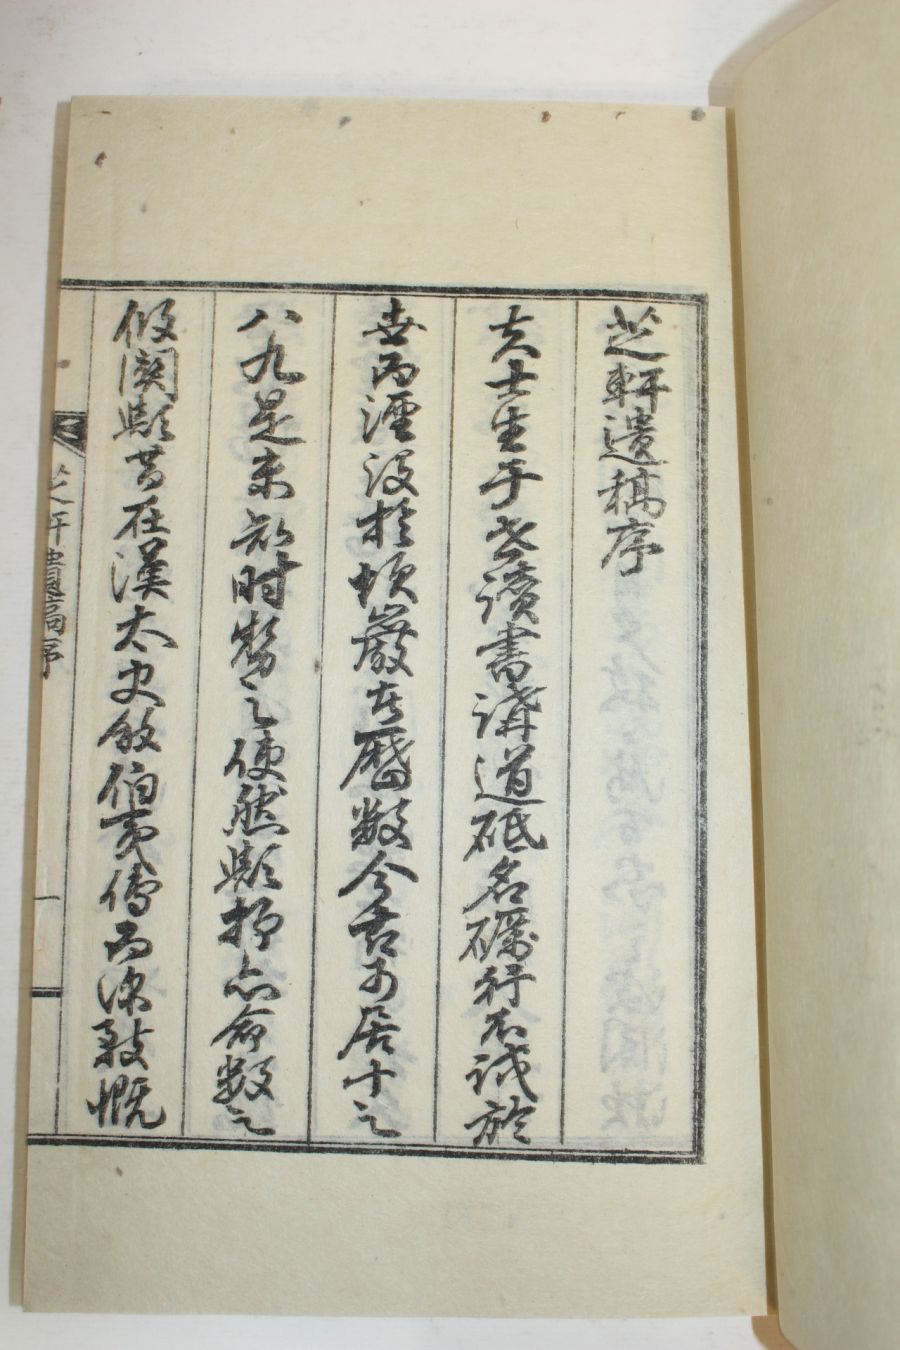 芝軒遺稿序
夫士生于世讀書講道砥名礪行不試於
世而湮沒於巖穴歷數今古可居十之
八九是未知時勢之使然歟抑亦命數之
攸關歟昔在漢太史敍伯夷傳而深致慨
芝軒遺稿序
一